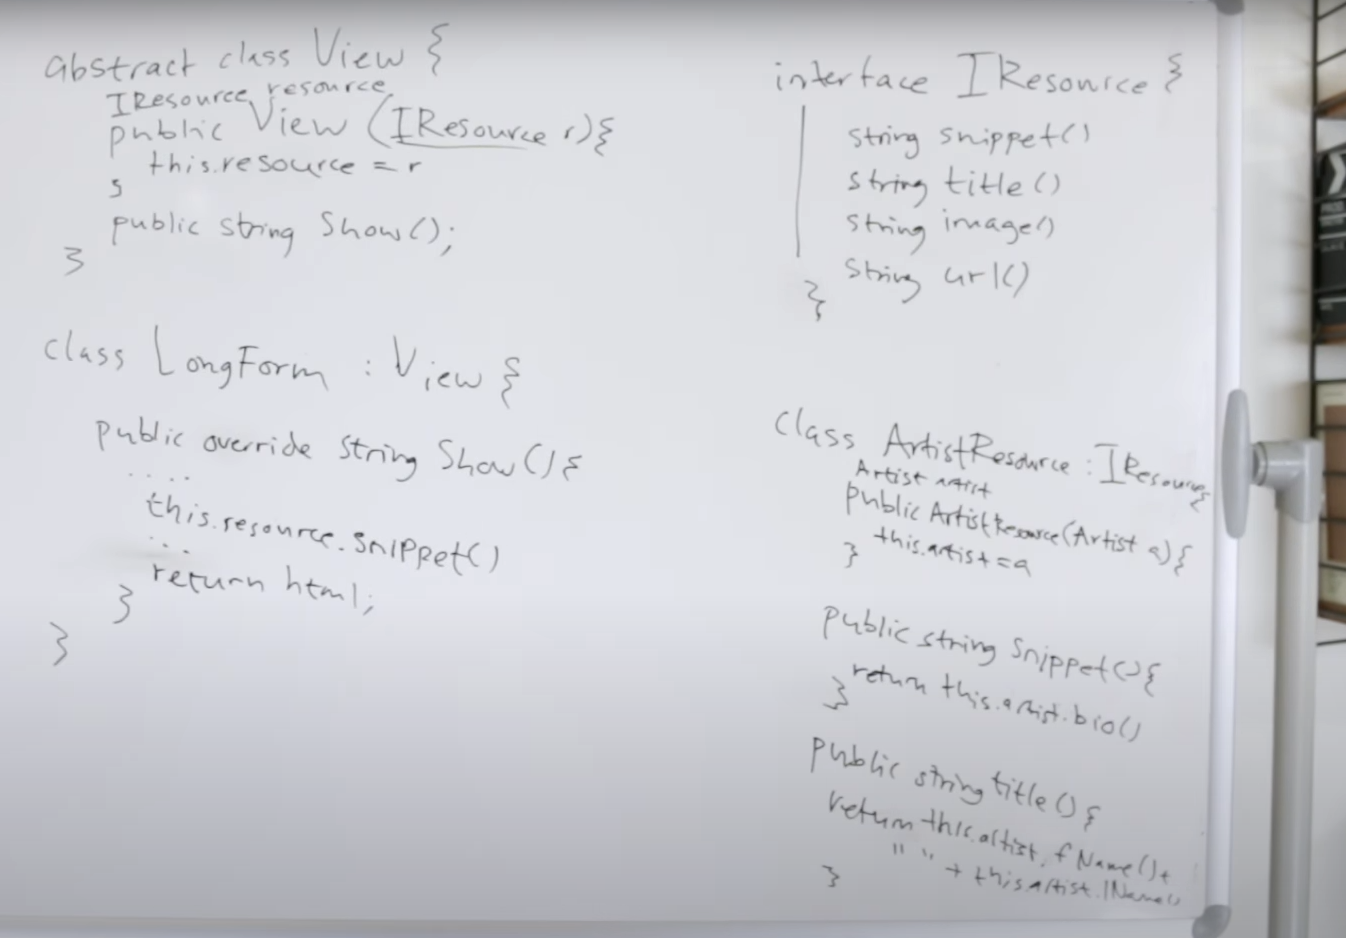 abstract class View {
IResource resource
public View (IResource r){
this.resource = r
}
public string Show();
}
class LongForm : View {
public override string Show() {
....
this.resource.snippet()
...
return html;
}
}
interface IResource {
string snippet()
string title()
string image()
string url()
}
class ArtistResource : IResource{
Artist artist
public ArtistResource(Artist a){
this.artist = a
}
public string Snippet(){
return this.artist.bio()
}
public string title() {
return this.artist.fName() +
" " + this.artist.lName()
}